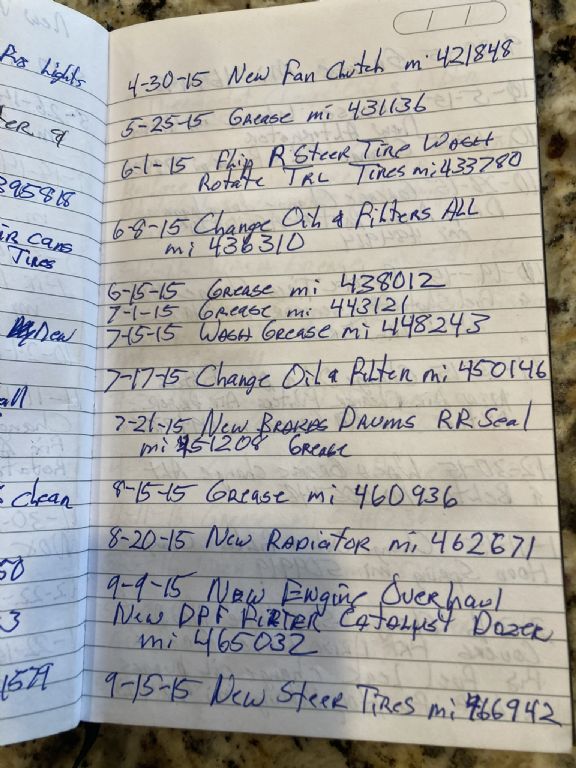 Lights
395818
Tires
New
clean
50
3
1579
4-30-15 New Fan Clutch mi 421848
5-25-15 Grease mi 431136
6-1-15 Flip R Steer Tire Wash
Rotate TRL Tires mi 433780
6-8-15 Change Oil & Filters ALL
mi 436310
6-15-15 Grease mi 438012
7-1-15 Grease mi 443121
7-15-15 Wash Grease mi 448243
7-17-15 Change Oil & Filter mi 450146
7-21-15 New Brakes Drums RR Seal
mi 451208 Grease
8-15-15 Grease mi 460936
8-20-15 New Radiator mi 462671
9-9-15 New Engine Overhaul
New DPF Filter Catalyst Dozer
mi 465032
9-15-15 New Steer Tires mi 466942